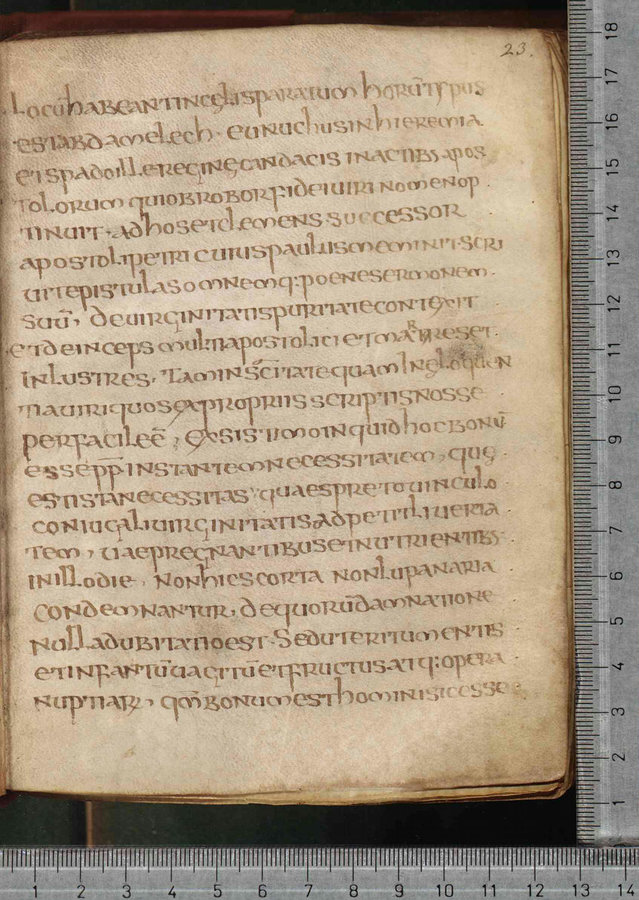 23.
locū habeant in celis paratum horū typus
est abdamelech · eunuchus in hieremia
et spado ille regine candacis in actibus apos
tolorum qui ob robor fidei uiri nomen op
tinuit · ad hos et clemens successor
apostoli petri cuius paulus meminit · scri
uit epistulas omnemq: poene sermonem
suū , de uirginitatis puritate contexit
et deinceps multi apostolici et martires et
inlustres , tam in scītate quam in eloquen
tia uiri quos ex propriis scriptis nosse
perfacile ē , existimo inquid hoc bonū
esse pp̄ instantem necessitatem , que
est ista necessitas quae spreto uinculo
coniugali uirginitatis adpetit liberta
tem , uae pregnantibus et nutrientibus
in illo die , non hic scorta non lupanaria
condemnantur , de quorū damnatione
nulla dubitatio est · sed uteri tumentis
et infantū uagitū et fructus atq: opera
nuptiarum , qm̄ bonum est homini sic esse
18
17
16
15
14
13
12
11
10
9
8
7
6
5
4
3
2
1
1 2 3 4 5 6 7 8 9 10 11 12 13 14